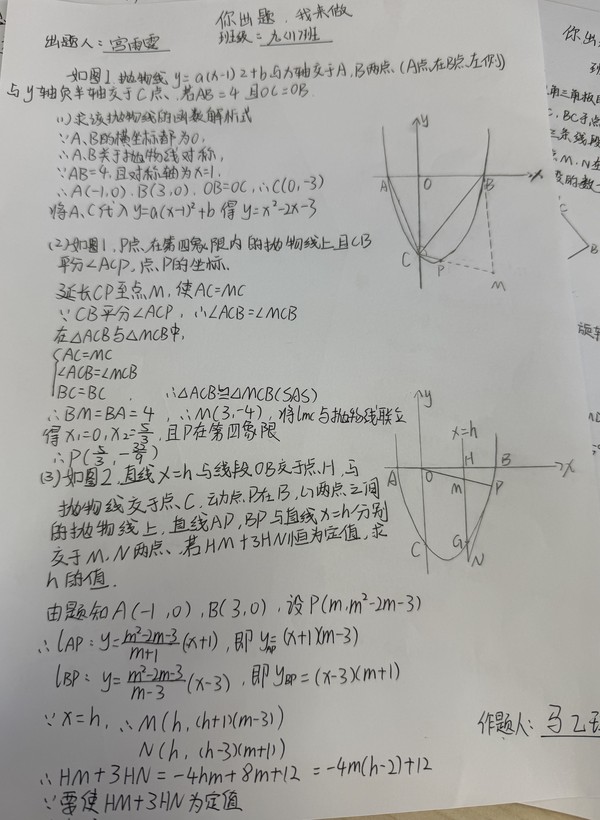 你出题，我来做
出题人：宫雨雲 班级：九(1)班
如图1，抛物线 y=a(x-1)2+b与x轴交于A,B两点(A点在B点左侧)
与y轴负半轴交于C点，若AB=4且OC=OB
(1)求该抛物线的函数解析式
∵A,B的横坐标都为0,
∴A,B关于抛物线对称,
∵AB=4,且对称轴为x=1,
∴A(-1,0),B(3,0), OB=OC,∴C(0,-3)
将A,C代入y=a(x-1)²+b得y=x²-2x-3
(2)如图1,P点在第四象限内的抛物线上,且CB
平分∠ACP,点P的坐标.
延长CP至点M,使AC=MC
∵CB平分∠ACP, ∴∠ACB=∠MCB
在△ACB与△MCB中,
{AC=MC
∠ACB=∠MCB
BC=BC ∴△ACB≌△MCB(SAS)
∴BM=BA=4, ∴M(3,-4),将lmc与抛物线联立
得x₁=0,x₂=5/3,且P在第四象限
∴P(5/3,-32/9)
(3)如图2,直线x=h与线段OB交于点H,与
抛物线交于点G,动点P在B,G两点之间
的抛物线上,直线AP,BP与直线x=h分别
交于M,N两点,若HM+3HN恒为定值,求
h的值.
由题知A(-1,0),B(3,0),设P(m,m²-2m-3)
∴lAP:y=m²-2m-3/m+1(x+1),即yAP=(x+1)(m-3)
lBP:y=m²-2m-3/m-3(x-3),即yBP=(x-3)(m+1)
∵x=h,∴M(h,(h+1)(m-3))
N(h,(h-3)(m+1))
∴HM+3HN=-4hm+8m+12=-4m(h-2)+12
∵要使HM+3HN为定值
y
A
O
B
x
C
P
M
y
x=h
A
O
H
B
x
M
P
C
G
N
作题人:马乙
你出
B
C
旋转